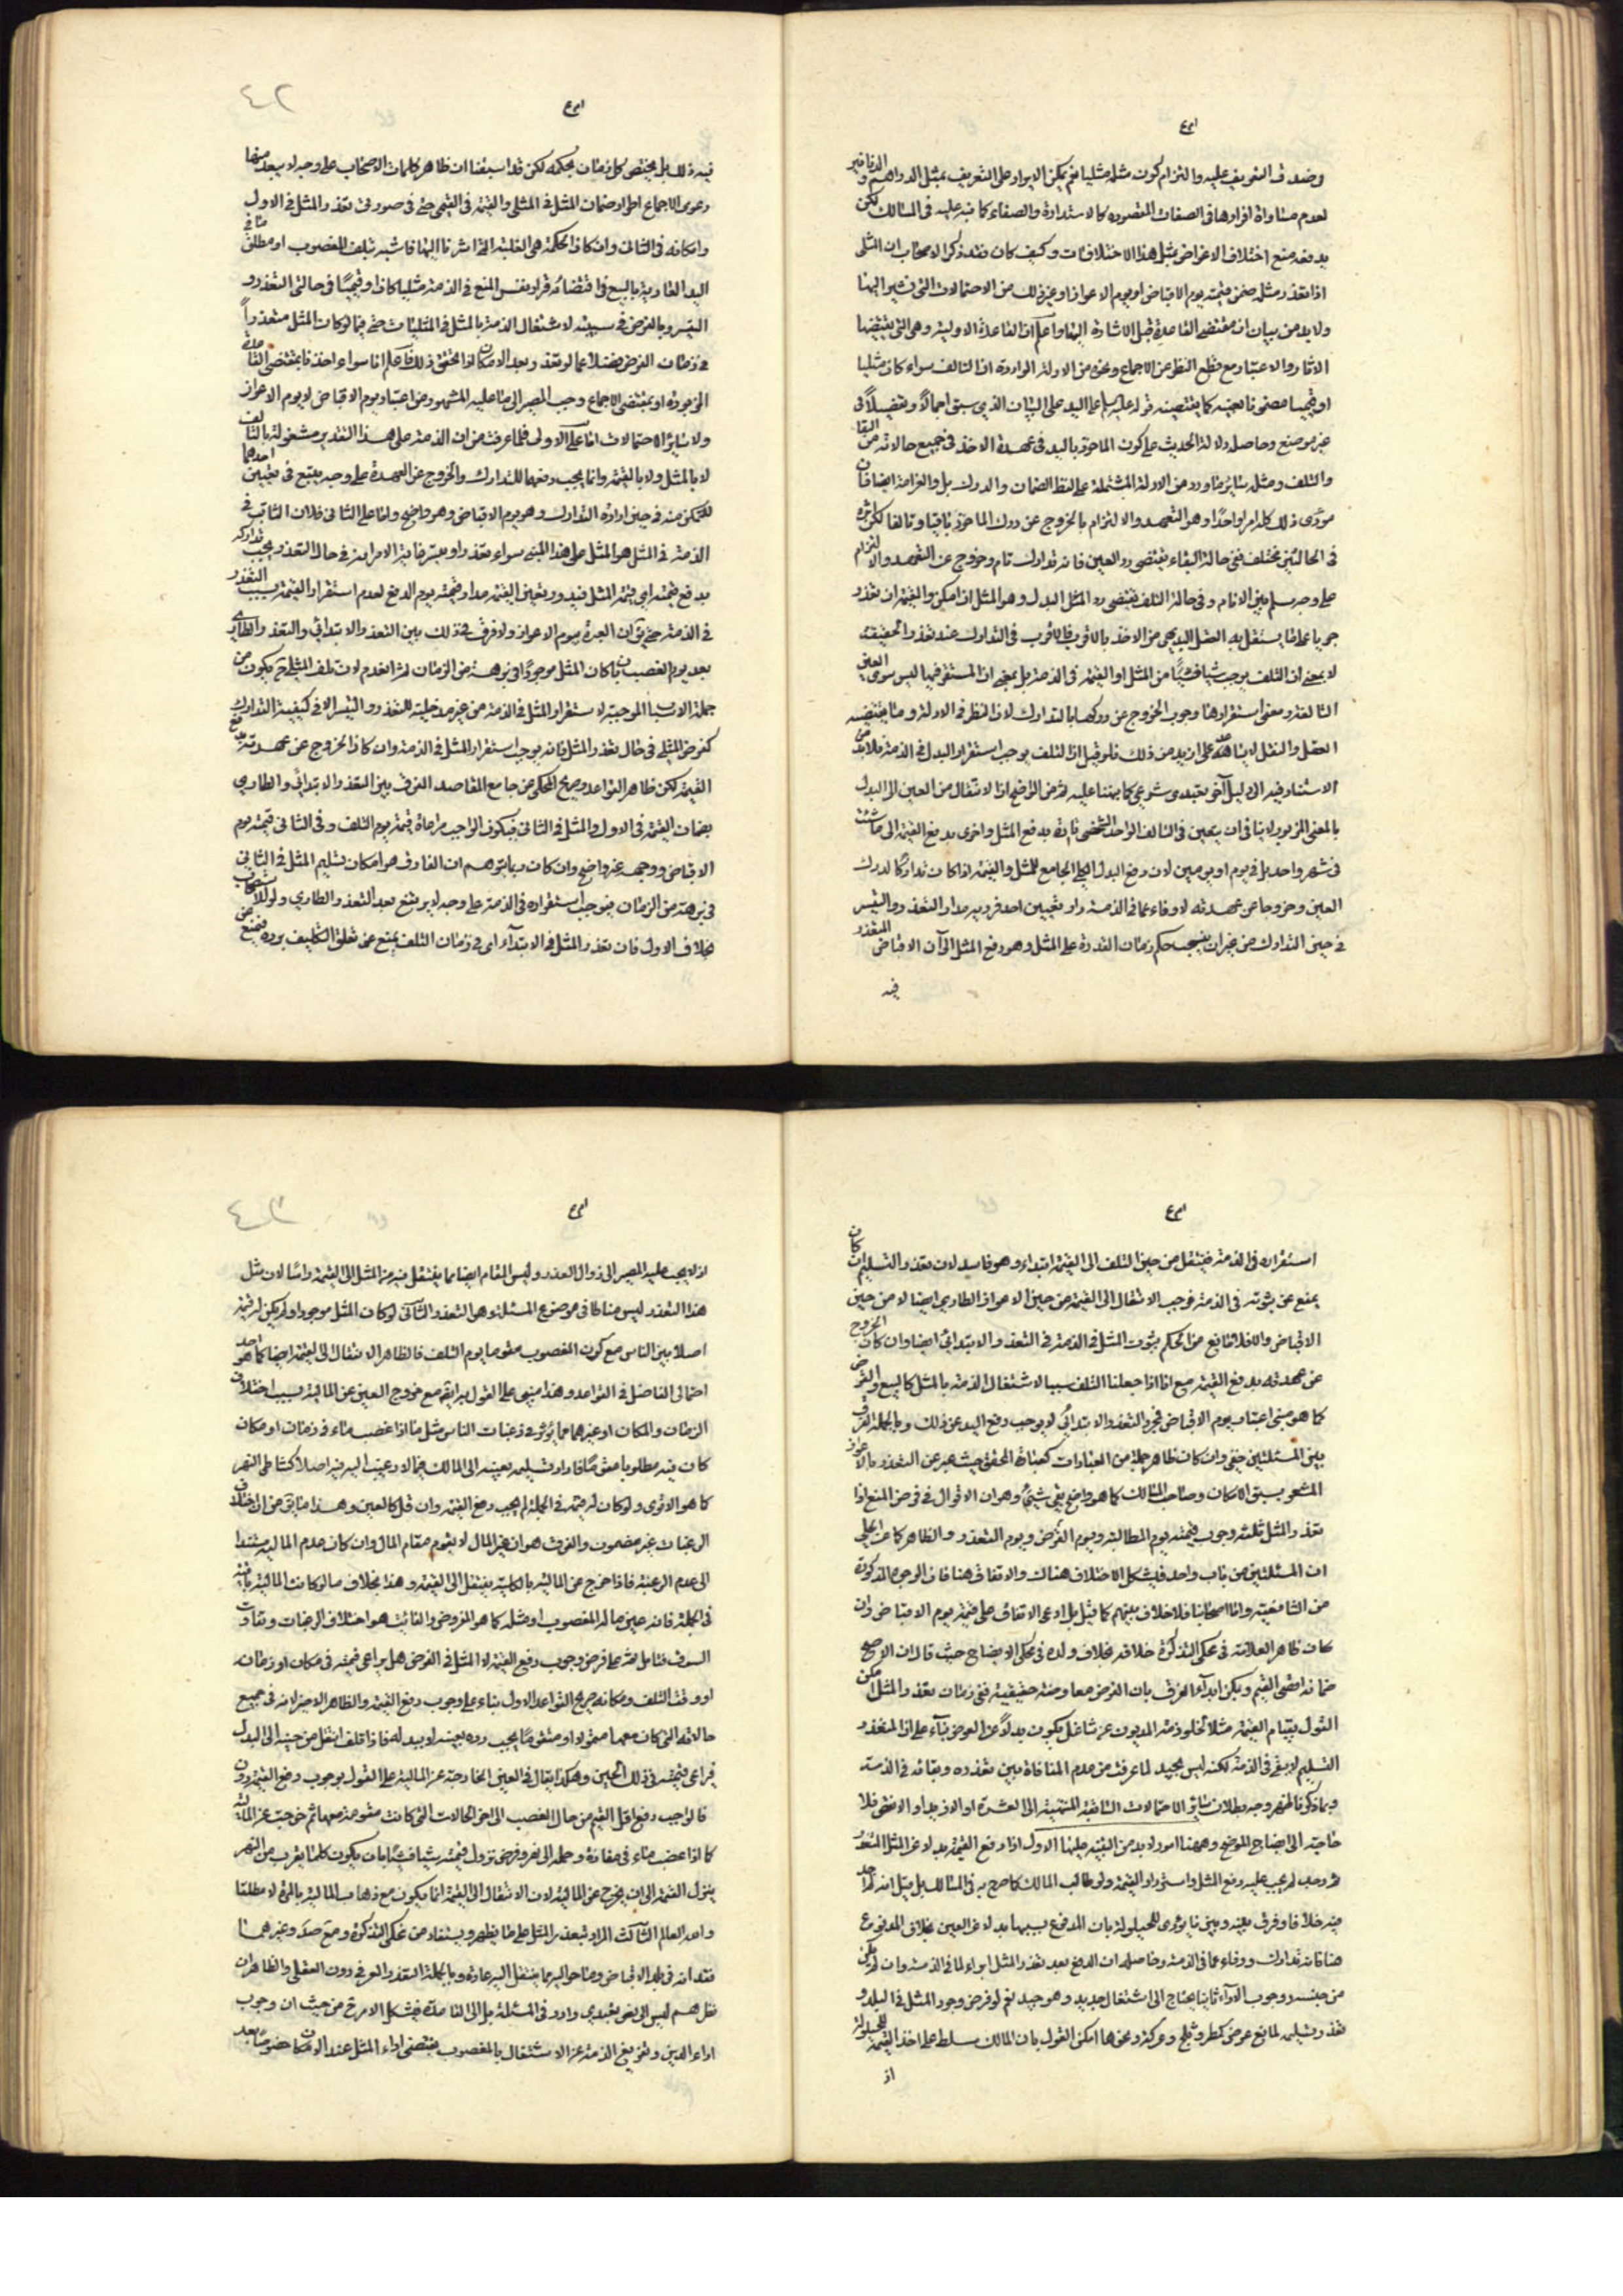 وضدق التعريف عليه والتزام كون مثله مثليا نعم يمكن الايراد على التعريف بمثل الدراهم والدنانير
لعدم مساواة افرادها فى الصفات المقصودة كالاستدارة والصفاء كما نبه عليه فى المسالك لكن
يدفعه منع اختلاف الاغراض بمثل هذا الاختلافات وكيف كان فقد ذكر الاصحاب ان المثلى
اذا تعذر مثله ضمن قيمته يوم الاقباض او يوم الاعواز او غير ذلك من الاحتمالات التى نشير اليها
ولا بد من بيان ان مقتضى القاعدة قبل الاشارة اليها واعلم ان القاعدة الاولية وهى التى يقتضيها
الاثار والاعتبار مع قطع النظر عن الاجماع وغيره من الادلة الواردة ان التالف سواء كان مثليا
او قيميا مضمون بعينه كما يقتضيه قوله عليه السلام على اليد على البيان الذى سبق اجمالاً وتفصيلاً فى
غير موضع وحاصله دلالة الحديث على كون الماخوذ باليد فى عهدة الاخذ فى جميع حالاته من البقا
والتلف ومثله سائر ما ورد من الادلة المشتملة على لفظ الضمان والدرك بل والغرامة ايضا فان
مؤدى ذلك كله امر واحدا وهو التعهد والالتزام بالخروج عن درك الماخوذ باقيا وتالفا لكن اثره
فى الحالتين مختلف ففى حالة البقاء يقتضى رد العين فانه تدارك تام وخروج عن التعهد والالتزام
على وجه سلم بين الانام وفى حالة التلف يقتضى رد المثل البدل وهو المثل ان امكن والقيمة ان تعذر
جريا على ما يستقل به العقل البديهى من الاخذ بالاقرب فالاقرب فى التدارك عند تعذر الحقيقة
لا بمعنى ان التلف يوجب شيئا فشيئا من المثل او القيمة فى الذمة بل بمعنى ان المستقر فيها ليس سوى العين
التالفة ومعنى استقرارها وجوب الخروج عن دركها بالتدارك لان النظر فى الادلة وما يقتضيه
العقل والنقل لا يساعد على ازيد من ذلك فلو قيل ان التلف يوجب استقرار البدل فى الذمة فلا بد من
الاستناد فيه الى دليل آخر تعبدى شرعى كما نبهنا عليه
بالمعنى المزبور لا ينافى ان يتعين فى التالف الواحد الشخصى تارة بدفع المثل واخرى بدفع القيمة الى ما شئت
فى شهر واحد بل فى يوم او يومين لان دفع البدل الكلى الجامع للمثل والقيمة اذا كان تداركا لدرك
العين وخروجا عن عهدته لا وفاء عما فى الذمة دار تعيين احد فرديه مدار التعذر والتيسر
فى حين التدارك من غير ان يستصحب حكم زمان القدرة على المثل وهو دفع المثل الى آن الاقباض المتعذر
فيه
فيه ذلك بل يختص كل زمان بحكمه لكن قد اسبقنا ان ظاهر كلمات الاصحاب على وجه لا يبعد معها
دعوى الاجماع اطراد ضمان المثل فى المثلى والقيمة فى القيمى حتى فى صورتى تعذر المثل فى الاول
وامكانه فى الثانى وان كان الحكمة هى الغلبة التى اشرنا اليها فاشبه تلف المغصوب او مطلق ما فى
اليد العادية بالبيع فى اقتضائه قرار نفس المبيع فى الذمة مثليا كان او قيميا فى حالتى التعذر و
التيسر وبالقرض فى سببيته لاشتغال الذمة بالمثل فى المثليات حتى فيما لو كان المثل متعذراً
فى زمان القرض فضلا عما لو تعذر بعد الامكان اذا تحقق ذلك فاعلم انا سواء اخذنا بمقتضى القاعدة
المزبورة او بمقتضى الاجماع وجب المصير الى ما عليه المشهور من اعتبار يوم الاقباض لا يوم الاعواز
ولا سائر الاحتمالات اما على الاولى فلما عرفت من ان الذمة على هذا التقدير مشغولة بالتالف
لا بالمثل ولا بالقيمة وانما يجب دفعهما للتدارك والخروج عن العهدة على وجه يتبع فى تعيين احدهما
للتمكن منه فى حين ارادة التدارك وهو يوم الاقباض وهو واضح واما على الثانى فلان الثابت فى
الذمة فى المثلى هو المثل على هذا المبنى سواء تعذر او تيسر غاية الامر انه فى حال التعذر يجب تداركه
بدفع قيمته اى قيمة المثل فيدور تعيين القيمة مدار قيمته يوم الدفع لعدم استقرار القيمة بسبب التعذر
فى الذمة حتى يق ان العبرة بيوم الاعواز ولا فرق فى ذلك بين التعذر الابتدائى والتعذر الطارى
بعد يوم الغصب بان كان المثل موجودا فى برهة من الزمان ثم انعدم لان تلف المثلى ح يكون من
جملة الاسباب الموجبة لاستقرار المثل فى الذمة من غير مدخلية للتعذر والتيسر الا فى كيفية التدارك
كقرض المثلى فى حال تعذر المثل فانه يوجب استقرار المثل فى الذمة وان كان الخروج عن عهدته بدفع
القيمة لكن ظاهر القواعد وصريح المحكى عن جامع المقاصد الفرق بين التعذر الابتدائى والطارى
بضمان القيمة فى الاول والمثل فى الثانى فيكون الواجب مراعاة قيمة يوم التلف وفى الثانى قيمته يوم
الاقباض ووجهه غير واضح وان كان ربما يتوهم ان الفارق هو امكان تسليم المثل فى الثانى
فى برهة من الزمان فيوجب استقراره فى الذمة على وجه لا يرتفع بعد التعذر الطارى ولو للاستصحاب
بخلاف الاول فان تعذر المثل فى الابتدآء اى فى زمان التلف يمنع عن تعلق التكليف برده فيمنع عن
استقراره فى الذمة فينتقل من حين التلف الى القيمة ابتداء وهو فاسد لان تعذر التسليم ان كان
يمنع عن ثبوته فى الذمة فوجب الانتقال الى القيمة من حين الاعواز الطارى ايضا لا من حين
الاقباض والا فلا مانع من الحكم بثبوت المثل فى الذمة فى التعذر الابتدائى ايضا وان كان الخروج
عن عهدته بدفع القيمة مع انا اذا جعلنا التلف سببا لاشتغال الذمة بالمثل كالبيع والقرض
كما هو مبنى اعتبار يوم الاقباض فمجرد التعذر الابتدائى لا يوجب رفع اليد عن ذلك وبالجملة الفرق
بين المسئلتين خفى وان كان ظاهر جملة من العبارات كعبارة المحقق حيث عبر عن التعذر بالاعواز
المشعر بسبق الامكان وصاحب المسالك كما هو واضح بقى شيئ وهو ان الاقوال فى قرض المنع اذا
تعذر المثل ثلثة وجوب قيمته يوم المطالبة ويوم القرض ويوم التعذر والظاهر كما عن الحلى
ان المسئلتين من باب واحد فيشكل الاختلاف هناك والاتفاق هنا فان الوجوه المذكورة
من الشافعية واما اصحابنا فلا خلاف بينهم كما قيل بل ادعى الاتفاق على قيمة يوم الاقباض وان
كان ظاهر العلامة فى محكى التذكرة خلافه بخلاف ولده فى محكى الايضاح حيث قال ان الاصح
ضمانه اقصى القيم ويمكن ابدآء الفرق بان القرض معاوضة حقيقية ففى زمان تعذر المثل امكن
القول بقيام القيمة مثلا لخلو ذمة المديون عن شاغل يكون بدلاً عن العوض بنآء على ان المتعذر
التسليم لا يبقى فى الذمة لكنه ليس بجيد لما عرفت من عدم المنافاة بين تعذره وبقائه فى الذمة
وبما ذكرنا ظهر وجه بطلان سائر الاحتمالات السابقة المنتهية الى العشرة او الازيد او الانقص فلا
حاجة الى ايضاح الموضع وههنا امور لا بد من التنبيه عليها الاول اذا دفع القيمة بدلا عن المثل المتعذر
ثم وجد لم يجب عليه دفع المثل واسترداد القيمة ولو طالب المالك كما صرح به فى المسالك بل قيل انه لم اجد
فيه خلافا وفرق بينه وبين ما يؤدى للحيلولة بان المدفوع بسببها بدلا عن العين بخلاف المدفوع
هنا فانه تدارك ووفاء عما فى الذمة وحاصله ان الدفع بعد تعذر المثل ابراء لما فى الذمة وان لم يكن
من جنسه ووجوب الادآء ثانيا يحتاج الى اشتغال جديد وهو جيد نعم لو فرض وجود المثل فى البلد و
تعذر تسليمه لمانع عرضى كمطر وثلج ومعركة ونحوها امكن القول بان المالك مسلط على اخذ القيمة للحيلولة
اذ
اذ لا يجب عليه الصبر الى زوال العذر وليس المقام ايضا مما ينتقل فيه من المثل الى القيمة راسا لان مثل
هذا التعذر ليس مناطا فى موضوع المسئلة وهو التعذر الثانى لو كان المثل موجودا ولم يكن له قيمة
اصلا بين الناس مع كون المغصوب متقوما يوم التلف فالظاهر الانتقال الى القيمة ايضا كما هو احد
احتمالى الفاضل فى القواعد وهذا مبنى على القول ببرائته مع خروج العين عن المالية بسبب اختلاف
الزمان والمكان او غيرهما مما يؤثر فى رغبات الناس مثل ما اذا غصب ماء فى زمان او مكان
كان فيه مطلوبا متقوما فاراد تسليمه بعينه الى المالك فيما لا رغبة اليه فيه اصلا كشاطى النهر
كما هو الاقوى ولو كان له قيمة فى الجملة لم يجب دفع القيمة وان قل كالعين وهذا ما يق من ان اختلاف
الرغبات غير مضمون والفرق هو ان غير المال لا يقوم مقام المال وان كان عدم المالية مستندا
الى عدم الرغبة فاذا خرج عن المالية بالكلية ينتقل الى القيمة وهذا بخلاف ما لو كانت المالية باقية
فى الجملة فانه عين مال المغصوب او مثله كما هو المفروض والفائت هو اختلاف الرغبات وتفاوت
السوق فتامل ثم على فرض وجوب دفع القيمة لا المثل فى الفرض هل يراعى قيمته فى مكان او زمان
او وقت التلف ومكانه صريح القواعد الاول بناء على وجوب دفع القيمة والظاهر الاخير لانه فى جميع
حالاته التى كان معها متمولا او متقوما يجب رده بعينه لا ببدله فاذا تلف انتقل من حينه الى البدل
فيراعى قيمته فى ذلك الحين وهكذا يقال فى العين الخارجة عن المالية على القول بوجوب دفع القيمة دون
فالواجب دفع اقل القيم من حال الغصب الى اخر الحالات التى كانت متقومة معها ثم خرجت عن المالية
كما اذا غصب ماء فى مفازة وحمله الى نهر وفرض نزول قيمته شيئا فشيئا بان يكون كلما يقرب من النهر
ينزل القيمة الى ان يخرج عن المالية لان الانتقال الى القيمة انما يكون مع ذهاب المالية بالمرة لا مطلقا
والله العالم الثالث المراد بتعذر المثل على ما يظهر ويستفاد من محكى التذكرة وضع صد وغيرهما
فقدانه فى بلد الاقباض وما حواليه مما ينتقل اليه عادة وبالجملة التعذر العرفى دون العقلى والظاهر ان
نظرهم ليس الى نص تعبدى وارد فى المسئلة بل الى القاعدة فيشكل الامر ح من حيث ان وجوب
اداء الدين وتفريغ الذمة عن الاشتغال بالمغصوب يقتضى اداء المثل عند الامكان خصوصا بعد